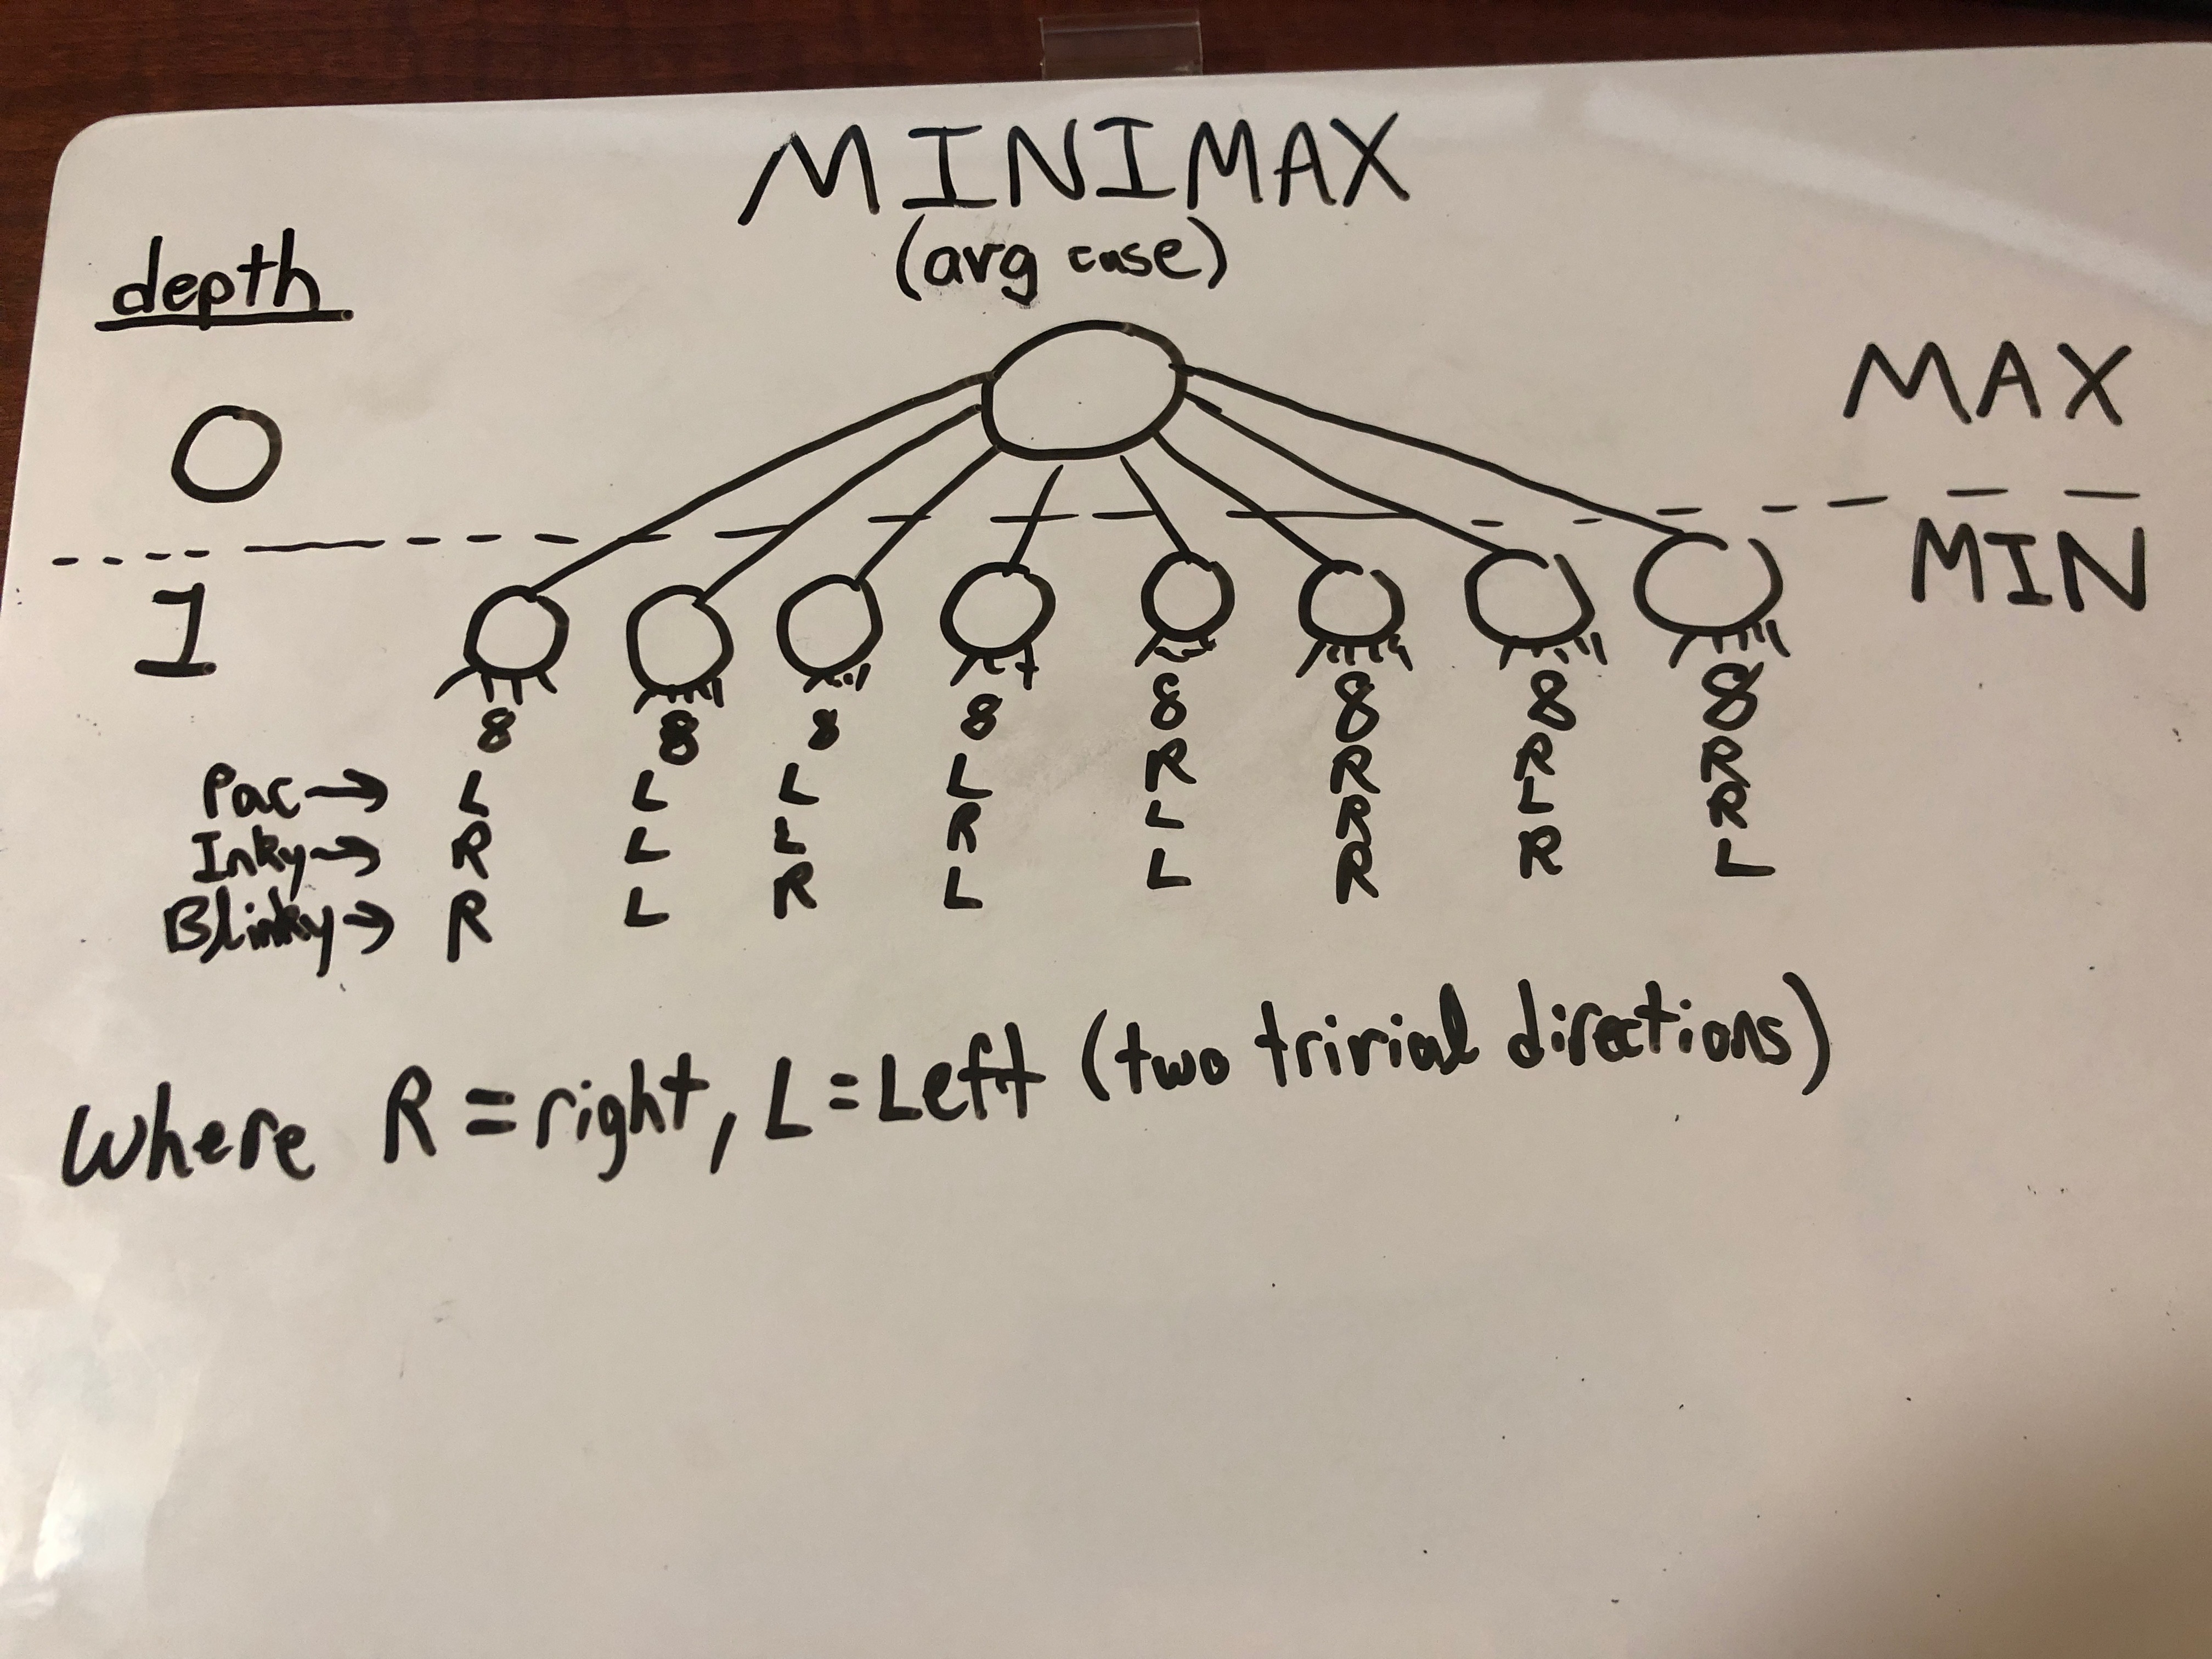 MINIMAX
(avg case)
depth
O
MAX
MIN
1
8 8 8 8 8 8 8 8
Pac→ L L L L R R R R
Inky→ R L L R L R L R
Blinky→ R L R L L R R L
Where R = right, L = Left (two trivial directions)